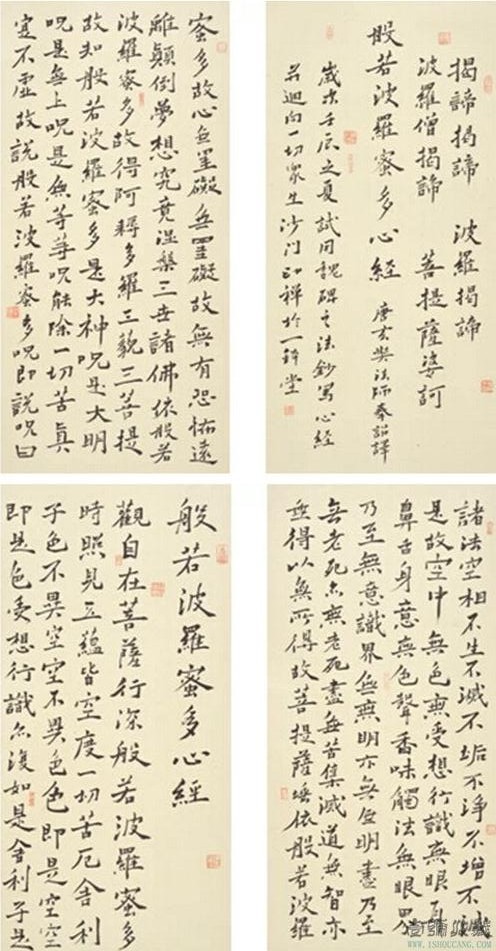 般若波羅蜜多心經
觀自在菩薩行深般若波羅蜜多
時照見五蘊皆空度一切苦厄舍利
子色不異空空不異色色即是空空
即是色受想行識亦復如是舍利子是
諸法空相不生不滅不垢不淨不增不減
是故空中無色無受想行識無眼耳
鼻舌身意無色聲香味觸法無眼界
乃至無意識界無無明亦無無明盡乃至
無老死亦無老死盡無苦集滅道無智亦
無得以無所得故菩提薩埵依般若波羅
蜜多故心無罣礙無罣礙故無有恐怖遠
離顛倒夢想究竟涅槃三世諸佛依般若
波羅蜜多故得阿耨多羅三藐三菩提
故知般若波羅蜜多是大神呪是大明
呪是無上呪是無等等呪能除一切苦真
寔不虛故說般若波羅蜜多呪即說呪曰
揭諦揭諦 波羅揭諦
波羅僧揭諦 菩提薩婆訶
般若波羅蜜多心經 唐玄奘法師奉詔譯
歲次壬辰之夏試用魏碑之法鈔寫心經
并迴向一切眾生沙門印禪於一禪堂
WWW.1SHOUCANG.COM